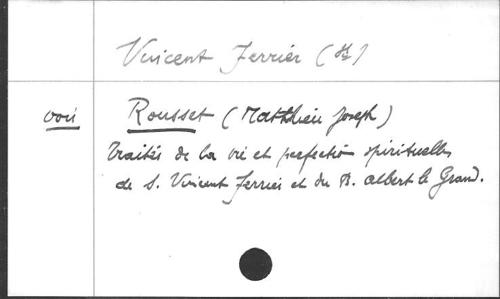 Vincent Ferrier (St)
voir Rousset (Matthieu Joseph)
Traités de la vie et perfection spirituelles
de S. Vincent Ferrier et du B. Albert le Grand.